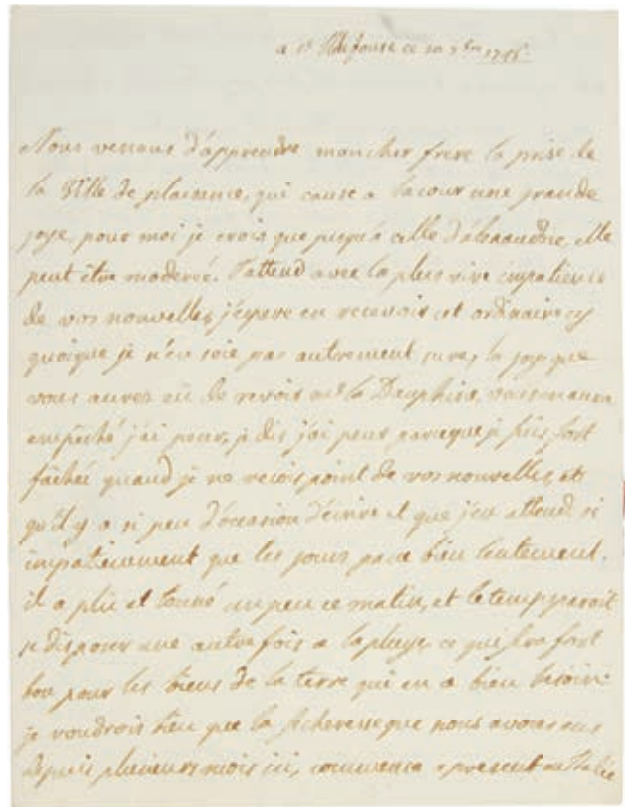 a St Ildefonse ce 20 7bre 1745
Nous venons d'apprendre mon cher frere la prise de
la Ville de plaisance, qui cause a la cour une grande
joye, pour moi je crois que jusqu'a celle d'alexandrie elle
peut être moderée. J'attend avec la plus vive impatience
de vos nouvelles, j'espere en recevoir cet ordinaire cy
quoique je n'en soie pas autrement sure, la joye que
vous aurez eü de revoir mr le Dauphin, vous en aura
empeché j'ai peur, je dis j'ai peur parceque je suis fort
fachée quand je ne recois point de vos nouvelles, et
qu'il y a si peu d'occasion d'écrire et que j'en attend si
impatiemment que les jours passe bien lentement.
il a plü et tonné un peu ce matin, et le temp paroit
se disposer une autre fois a la pluye, ce qui fera fort
bon pour les biens de la terre qui en a bien besoin
je voudrois bien que la secheresse que nous avons eus
depuis plusieurs mois ici, commenca a present en Italie